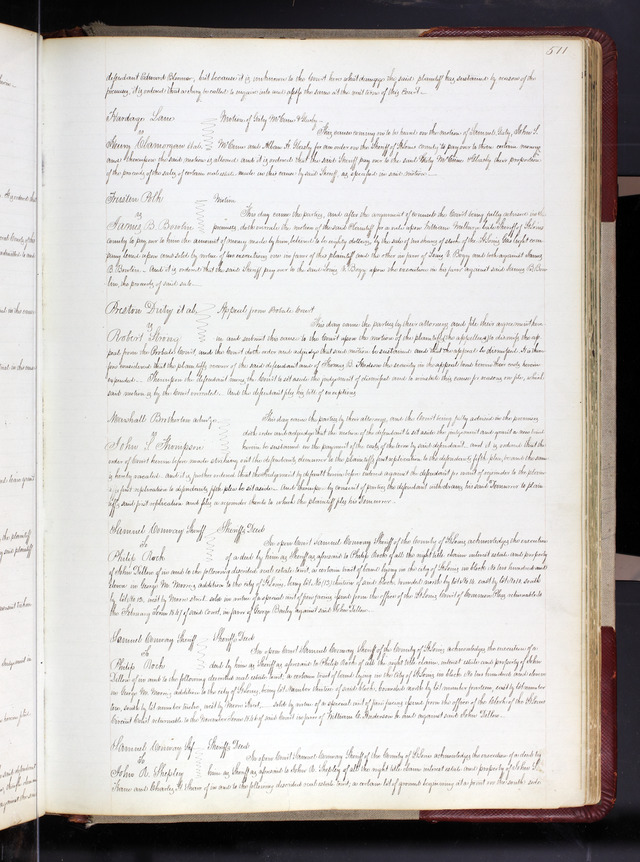 511
defendant Edmund Blannor, but because it is unknown to the Court here what damages the said plaintiff has sustained by reason of the
premises, it is ordered that a jury be called to inquire into and assess the same at the next term of this Court.
Hardage Lane
vs
Henry Clamorgan et als.
Motion of Giby McCune & Glasby
This cause coming on to be heard on the motion of Samuel Gaty, John S.
McCune and Allan H. Glasby for an order on the Sheriff of St Louis County to pay over to them certain moneys
and thereupon the said motion is allowed and it is ordered that the said Sheriff pay over to the said Gaty McCune & Glasby their proportion
of the proceeds of the sales of certain real estate made in this cause by said Sheriff, as specified in said motion.
Trusten Polk
vs
James B. Bowlin
Motion
This day came the parties, and after the argument of counsel the Court being fully advised in the
premises doth overrule the motion of the said Plaintiff for a rule upon William Milburn late Sheriff of St Louis
county to pay over to him the amount of money made by him, by the sale of shares of stock of the St Louis Gas Light com
pany levied upon and sold by virtue of two executions one in favor of this plaintiff and the other in favor of Louis V. Bogy and both against James
B. Bowlin. And it is ordered that the said Sheriff pay over to the said Louis V. Bogy upon the execution in his favor against said James B. Bow
lin, the proceeds of said sale.
Preston Duty et als.
vs
Robert Strong
Appeal from Probate Court
This day came the parties by their attorneys and file their agreement here
in and submit this cause to the Court upon the motion of the plaintiffs (the appellees) to dismiss the ap
peal from the Probate Court, and the Court doth order and adjudge that said motion be sustained and that the appeal be dismissed. It is there
fore considered that the plaintiffs recover of the said defendant and of the security in the appeal bond herein their costs herein
expended. Thereupon the Defendant moves the Court to set aside the judgment of dismissal and to reinstate this cause for reasons on file, which
said motion is by the Court overruled. And the defendant files his bill of exceptions
Marshall Brotherton admr
vs
John S. Thompson
This day came the parties by their attorneys, and the Court being fully advised in the premises
doth order and adjudge that the motion of the defendant to set aside the judgment and grant a new trial
herein be sustained on the payment of the costs of the term by said defendant, and it is ordered that the
order of Court herein before made striking out the defendants demurrer to the plaintiffs first replication to the defendants fifth plea, be and the same
is hereby vacated. and it is further ordered that the Judgment by default herein before entered against the defendant for want of rejoinder to the plaintiffs
first replication to defendants fifth plea be set aside. And thereupon by consent of parties the defendant withdraws his said Demurrer to plain
tiffs said first replication and files a rejoinder thereto to which the plaintiff files his Demurrer.
Samuel Conway Sheriff
To
Philip Rock
Sheriffs Deed
In open Court Samuel Conway Sheriff of the County of St Louis acknowledges the execution
of a deed by him as Sheriff as aforesaid to Philip Rock of all the right title claim interest estate and property
of John Dellow of in and to the following described real estate to wit, a certain tract of land lying in the city of St Louis, in block No one hundred and
eleven in George M. Moores addition to the city of St Louis, being lot No (13) thirteen of said block, bounded north by lot No 14 east by lot No 12 south
by lot No 12, west by Moore Street. Sold by virtue of a special writ of fieri facias issued from the office of the St Louis Court of Common Pleas returnable to
the February Term 1847 of said Court, in favor of George Bailey against said John Dellow.
Samuel Conway Sheriff
To
Philip Rock
Sheriffs Deed
In open Court Samuel Conway Sheriff of the County of St Louis acknowledges the execution of a
deed by him as Sheriff as aforesaid to Philip Rock of all the right title claim, interest, estate and property of John
Dellow of in and to the following described real estate to wit, a certain tract of land lying in the city of St Louis, in block No one hundred and eleven
in George M. Moores addition to the city of St Louis, being lot Number thirteen of said block, bounded north by lot number fourteen, east by lot number
two, south by lot number twelve, west by Moore Street, sold by virtue of a special writ of fieri facias issued from the office of the Clerk of the St Louis
Circuit Court returnable to the November Term 1846 of said Court in favor of William G. Anderson and against said John Dellow.
Samuel Conway Shff
To
John R. Shepley
Sheriffs Deed
In open Court Samuel Conway Sheriff of the County of St Louis acknowledges the execution of a deed by
him as Sheriff as aforesaid to John R. Shepley of all the right title claim interest estate and property of John S.
and Charles H. of in and to the following described real estate to wit, a certain lot of ground beginning at a point on the south side